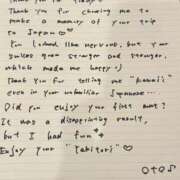 Thank you for choosing me to
make a memory of your trip
to Japan♡
You looked like nervous, but your
got stronger and stronger,
which made me happy :)
Thank you for telling me "kawaii"
even in your unfamiliar Japanese...
Did you enjoy your first
It was a disappointing result,
but I had fun
Enjoy your "Yakitori" ♡